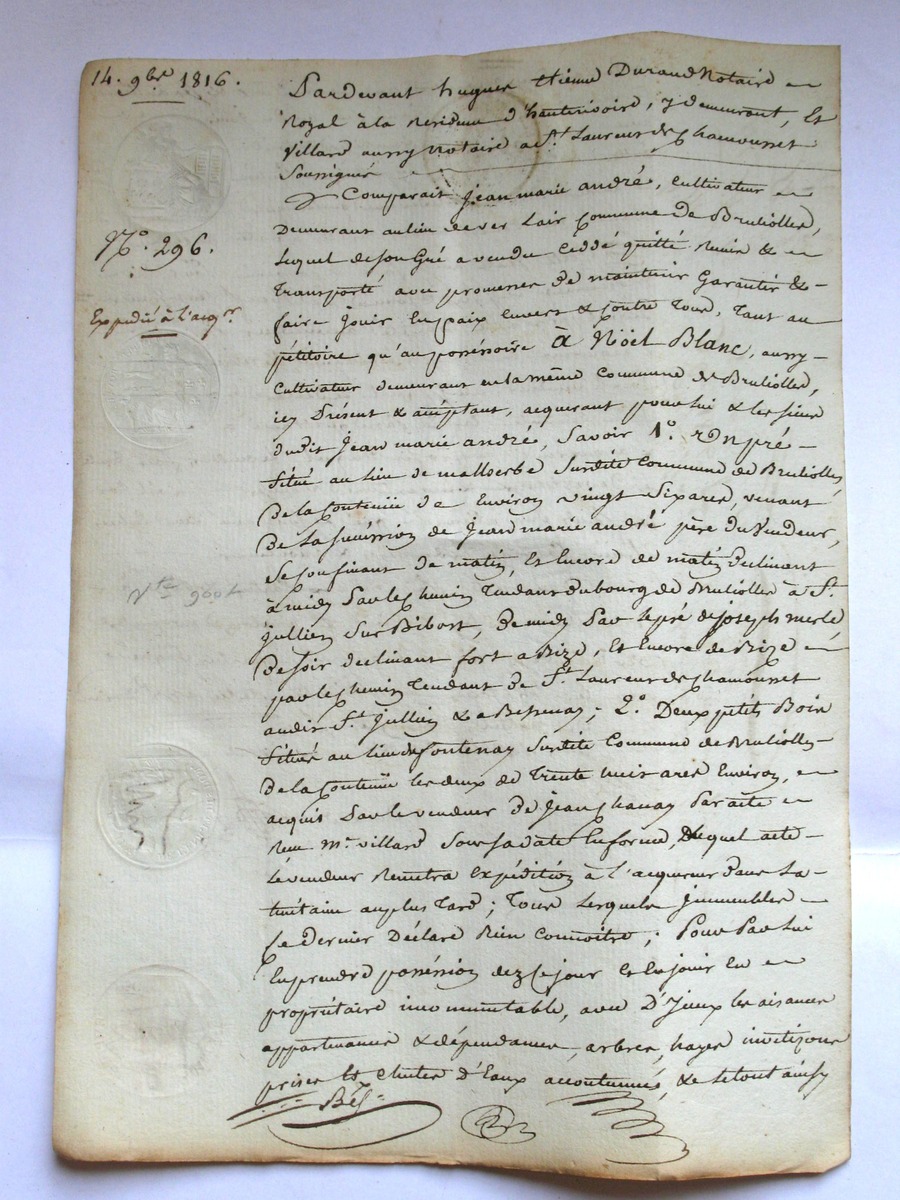 14. 9bre 1816.
N.° 296.
Expédié à l'acqr.
Vte 900 f
Pardevant hugues Etienne Durand Notaire
Royal à la Residence d'hauterivoire, y demeurant, Et
Villard aussy Notaire a St. Laurent de Chamousset
Soussignés
Comparait Jean marie andré, Cultivateur
Demeurant au lieu de Commune De Brulioller,
Lequel de son Gré a vendu Ceddé quitté Remis &
Transporté avec promesse de maintenir Garantir &
faire Jouir En paix Envers & Contre Tous, Tant au
pétitoire qu'au posséssoire à Nöel Blanc, aussy
Cultivateur demeurant en la même Commune de Brulioller,
icy Présent & acceptant, acquerant pour lui & les siens
dudit Jean marie andré, Savoir 1.° un pré
Situé au lieu de malherbe Surdite Commune de Brulioller,
De la Contenüe de Environ vingt Six ares, venant
De La Succession de Jean marie andré père du Vendeur,
Se Confinant de matin, Et Encore de matin declinant
à midy Par le Chemin Tendant du bourg de Brulioller à St.
Jullien Sur Bibost, De midy Par le pré de joseph merle
De soir declinant fort a Bize, Et Encore de Bize
par le Chemin Tendant de St. Laurent de Chamousset
audit St. Jullien & a Bessenay; 2.° Deux petits Bois
Situés au lieu de fontenay Surdite Commune de Brulioller
De la Contenüe les deux de Trente huit ares Environ,
acquis Par le vendeur de Jean Par acte
Reçu me. villard Sous sa date En forme, Duquel acte
Le vendeur Remettra Expédition à l'acquereur Dans La
huitaine au plus Tard; Tous Lesquels Jmmeubles
Ce Dernier Déclare Bien Connoitre; Pour Par lui
En prendre posséssion dez Ce jour Et En jouir En
propriétaire incommutable, avec D'Jceux les aisances
appartenances & dépendances, arbres, hayes
prises Et Chutes d'Eaux accoutumées, & le tout ainsy